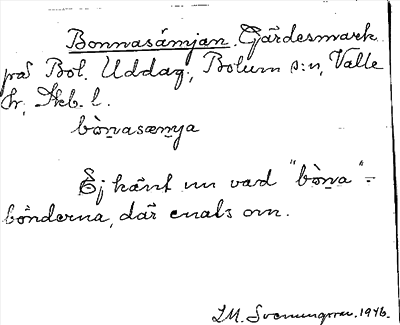 Bonnasämjan. Gärdesmark
på Bol. Uddag., Bolum s:n, Valle
hr, Skb. l.
bòn̠asæm̠ya
Ej känt nu vad "bòn̠a" =
bönderna, där enats om.
1946.